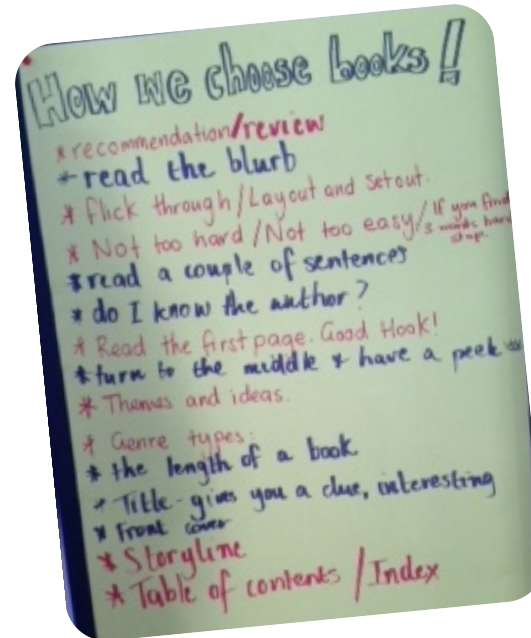 How we choose books!
* recommendation/review
* read the blurb
* flick through/Layout and setout.
* Not too hard/Not too easy/If you find
3 words hard
stop.
* read a couple of sentences
* do I know the author?
* Read the first page. Good Hook!
* turn to the middle & have a peek
* Themes and ideas.
* Genre types:
* the length of a book
* Title - gives you a clue, interesting
* Front cover
* Storyline
* Table of contents / Index